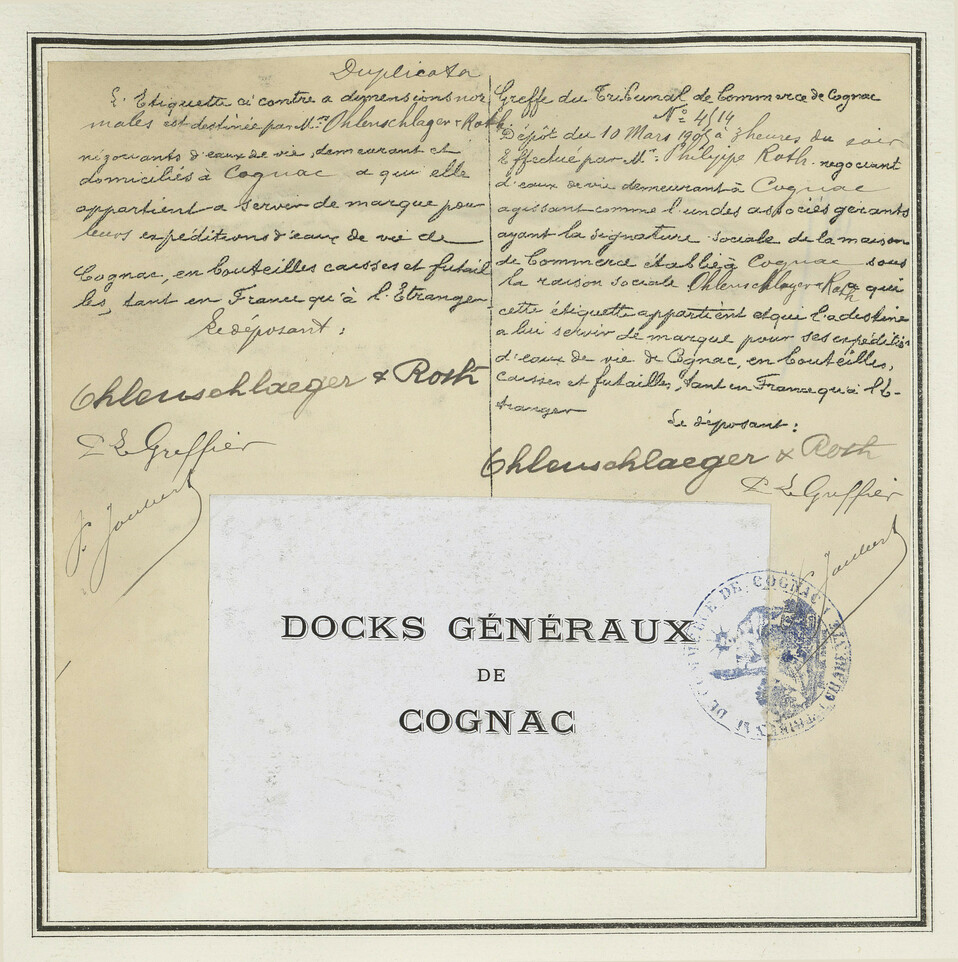 Duplicata
L'Etiquette ci contre a dimensions nor
males est destinée par Mrs Ohlenschlager & Roth
négociants d'eaux de vie, demeurant et
domiciliés à Cognac a qui elle
appartient a servir de marque pour
leurs expéditions d'eaux de vie de
Cognac, en bouteilles caisses et futail
les, tant en France qu'à l'Etranger
Le déposant :
Ohlenschlaeger & Roth
P. Le Greffier
J. Joubert
Greffe du Tribunal de Commerce de Cognac
No 4514
Dépôt du 10 Mars à 3 heures du soir
Effectué par Mr Philippe Roth negociant
d'eaux de vie demeurant à Cognac
agissant comme l'un des associés gérants
ayant la signature sociale de la maison
de Commerce établie à Cognac sous
la raison sociale Ohlenschlager & Roth a qui
cette étiquette appartient et qui l'a destine
a lui servir de marque pour ses expéditions
d'eaux de vie de Cognac, en bouteilles,
caisses et futailles, tant en France qu'à l'E-
tranger
Le déposant :
Ohlenschlaeger & Roth
P. Le Greffier
J. Joubert
TRIBUNAL DE COMMERCE DE COGNAC CHARENTE
DOCKS GÉNÉRAUX
DE
COGNAC